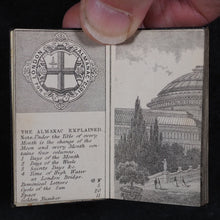 LONDON ALMANACK
THE ALMANAC EXPLAINED
Note. Under the Title of every
Month is the change of the
Moon and every Month con
tains four columns.
1 Days of the Month
2 Days of the Week
3 Saints Days &c
4 Time of High Water
at London Bridge.
Dominical Letters
Cycle of the Sun
Epact
Golden Number